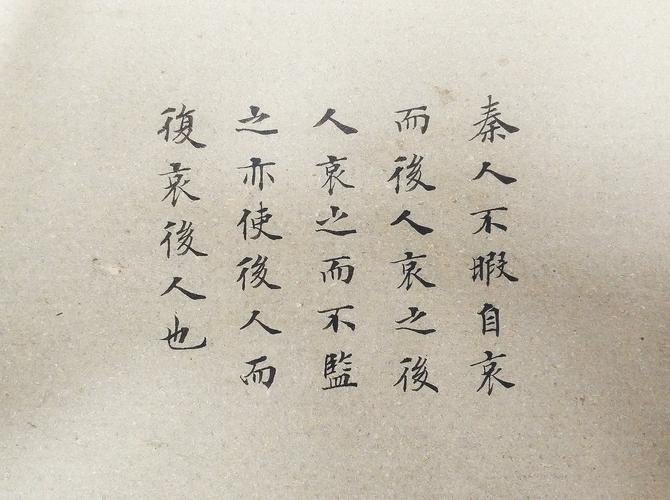 秦人不暇自哀
而後人哀之後
人哀之而不監
之亦使後人而
復哀後人也